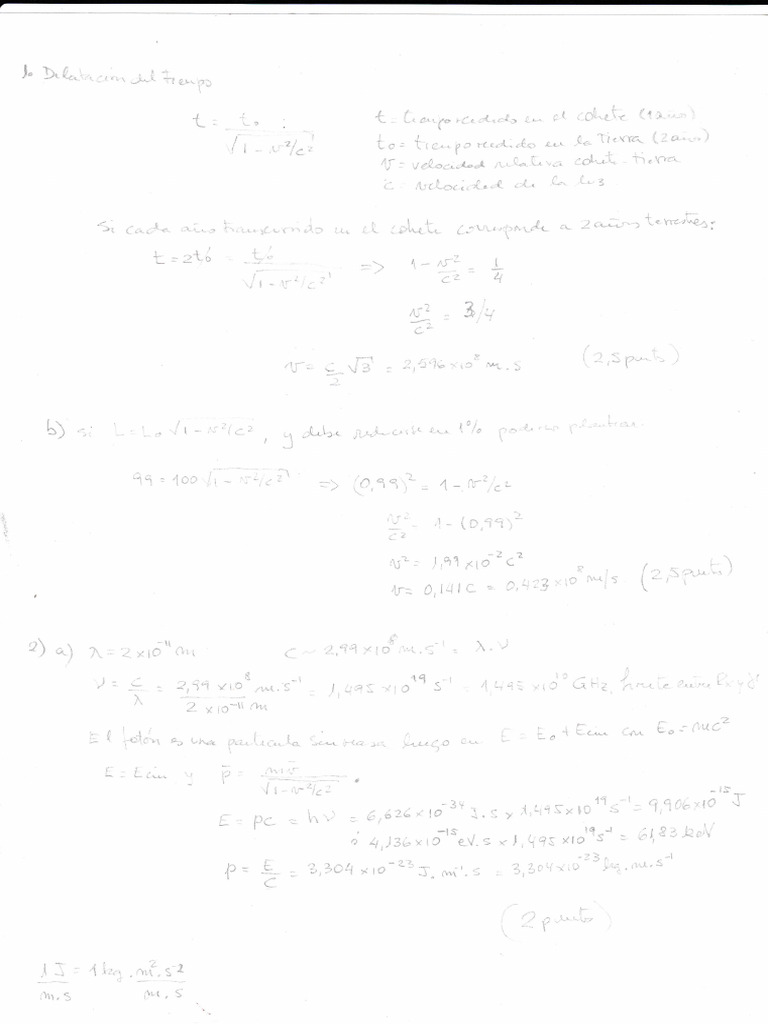 1. Dilatación del Tiempo
t = t₀ / √(1 - v²/c²) :
t = tiempo medido en el cohete (1 año)
t₀ = tiempo medido en la Tierra (2 años)
v = velocidad relativa cohete-tierra
c = velocidad de la luz
Si cada año transcurrido en el cohete corresponde a 2 años terrestres:
t = 2t₀' = t₀' / √(1 - v²/c²) ⇒ 1 - v²/c² = 1/4
v²/c² = 3/4
v = c/2 √3 = 2,596×10⁸ m.s (2,5 punts)
b) si L = L₀ √(1 - v²/c²), y debe reducirse en 1% podemos plantear.
99 = 100 √(1 - v²/c²) ⇒ (0,99)² = 1 - v²/c²
v²/c² = 1 - (0,99)²
v² = 1,99×10⁻² c²
v = 0,141c = 0,423×10⁸ m/s (2,5 punts)
2) a) λ = 2×10⁻¹¹ m c ~ 2,99×10⁸ m.s⁻¹ = λ.ν
ν = c/λ = 2,99×10⁸ m.s⁻¹ / 2×10⁻¹¹ m = 1,495×10¹⁹ s⁻¹ = 1,495×10¹⁰ GHz, límite entre Rx y γ
El fotón es una partícula sin masa luego en E = E₀ + Ecin con E₀ = mc²
E = Ecin y p̄ = m.v̄ / √(1 - v²/c²) .
E = pc = hν = 6,626×10⁻³⁴ J.s × 1,495×10¹⁹ s⁻¹ = 9,906×10⁻¹⁵ J
ó 4,136×10⁻¹⁵ eV.s × 1,495×10¹⁹ s⁻¹ = 61,83 keV
p = E/c = 3,304×10⁻²³ J.m⁻¹.s = 3,304×10⁻²³ kg.m.s⁻¹
(2 punts)
1J / m.s = 1 kg . m².s⁻² / m.s